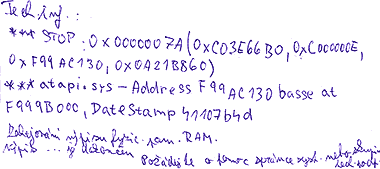 Tech. inf.:
*** STOP: 0x0000007A (0xC03E66B0, 0xC000000E,
0xF99AC130, 0x0A21B860)
*** atapi.sys – Address F99AC130 basse at
F999B000, DateStamp 41107b4d
výpisu fyzic. pam. RAM.
výpis ... je dokončen
Požádejte o pomoc správce syst. nebo